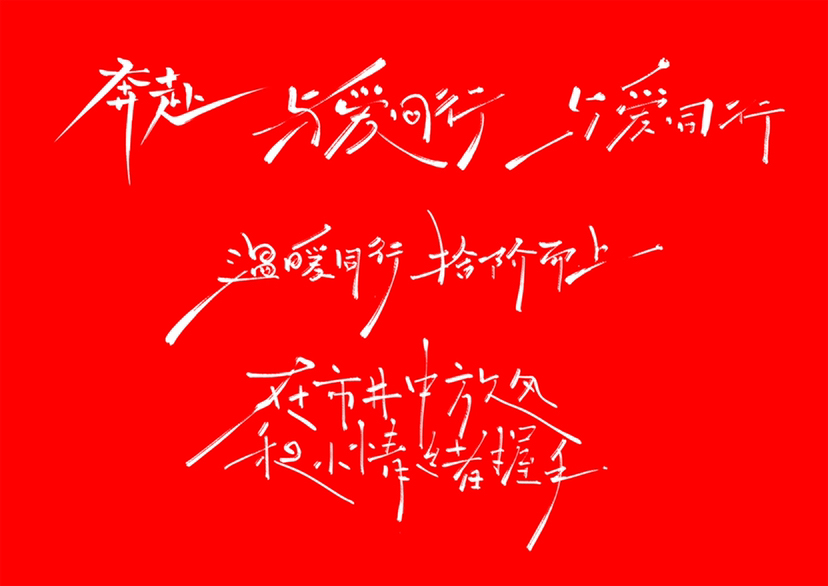 奔赴 与爱同行 与爱同行
温暖同行 拾阶而上
在市井中放风
和小情绪握手